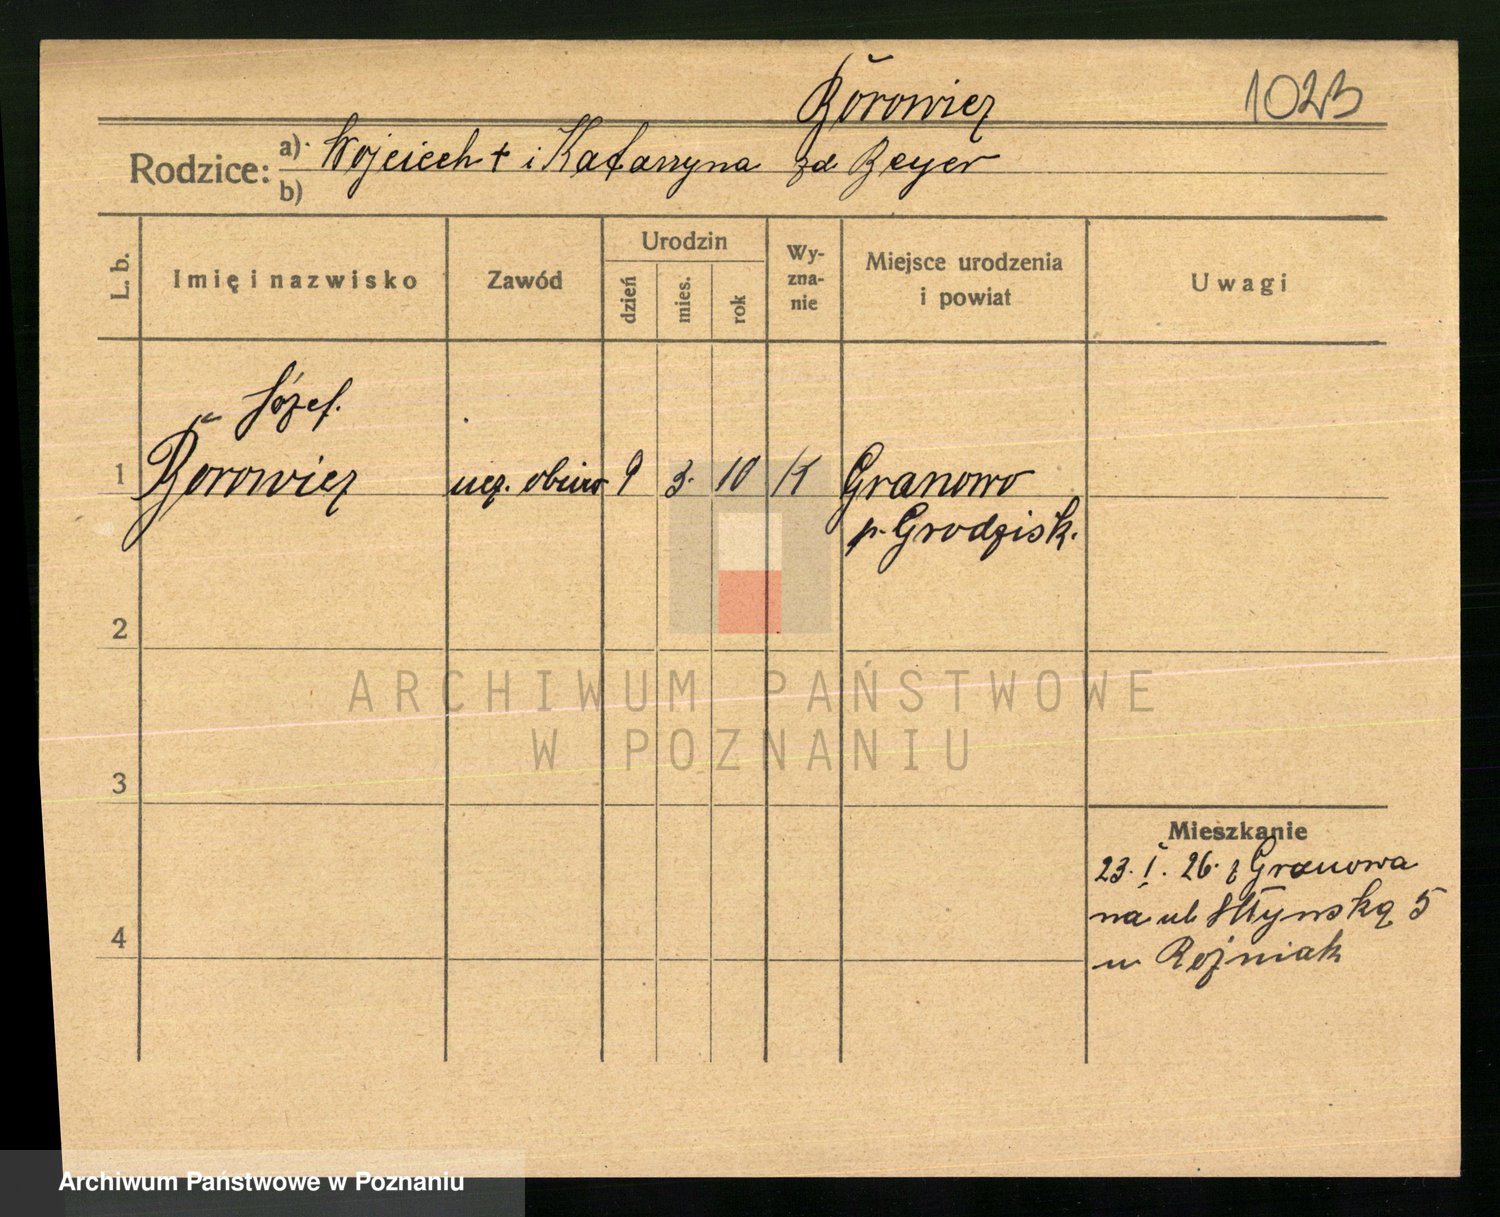 Borowicz 1023
Rodzice: a) Wojciech + i Katarzyna zd Beyer
b)
L. b. Imię i nazwisko Zawód Urodzin dzień mies. rok Wy-zna-nie Miejsce urodzenia i powiat Uwagi
Józef.
1 Borowicz ucz. obuw 9 3. 10 K Granowo
p. Grodzisk.
2
ARCHIWUM PAŃSTWOWE
W POZNANIU
3
Mieszkanie
23. I. 26. z Granowa
na ul 5
4
u Rożniak
Archiwum Państwowe w Poznaniu